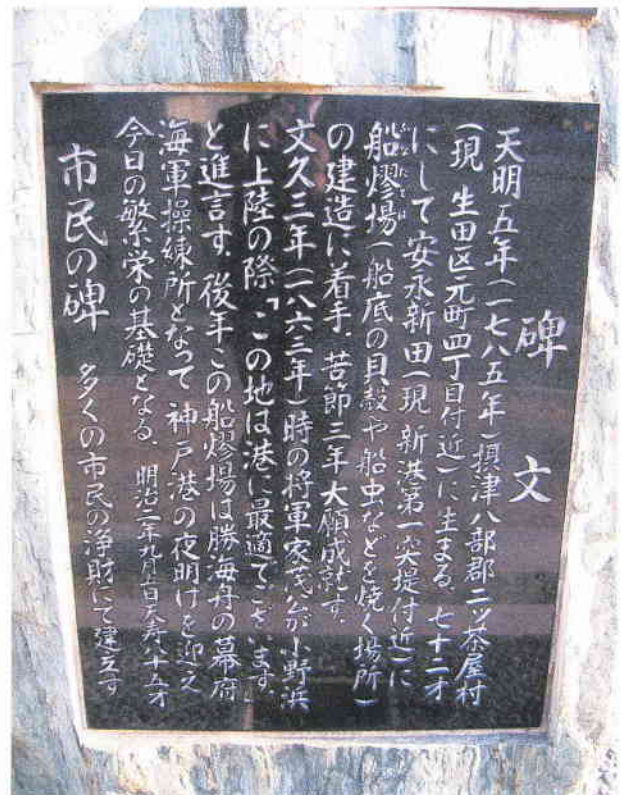 碑文
天明五年(一七八五年)摂津八部郡二ツ茶屋村
(現 生田区元町四丁目付近)に生まる、七十二才
にして安永新田(現 新港第一突堤付近)に
船熮場(船底の貝殻や船虫などを焼く場所)
ふなたでば
の建造に着手、苦節三年大願成就す、
文久三年(一八六三年)時の将軍家茂が小野浜
に上陸の際、「この地は港に最適でございます、」
と進言す、後年この船熮場は勝海舟の幕府
海軍操練所となって 神戸港の夜明けを迎え
今日の繁栄の基礎となる、 明治二年九月 日天寿八十五才
市民の碑 多くの市民の浄財にて建立す